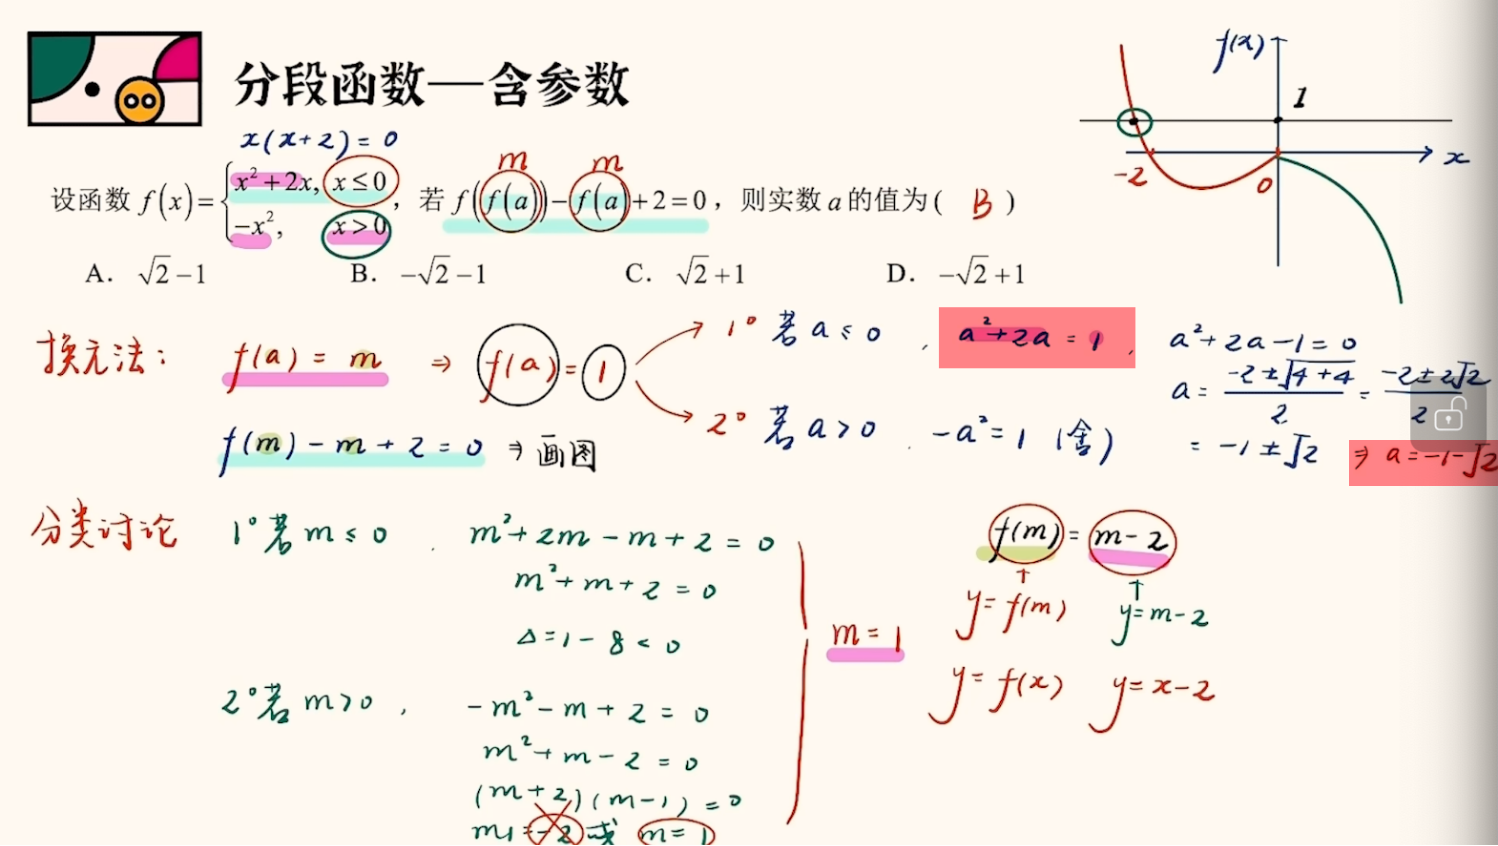 分段函数—含参数
x(x+2)=0
设函数 f(x)={x²+2x, x≤0
-x², x>0
, 若 f(f(a))-f(a)+2=0, 则实数 a 的值为( B )
m m
A. √2-1 B. -√2-1 C. √2+1 D. -√2+1
f(x)
1
x
-2 0
换元法: f(a)=m ⇒ f(a)=1
1° 若 a≤0, a²+2a=1, a²+2a-1=0
a=(-2±√(4+4))/2=(-2±2√2)/2
2° 若 a>0, -a²=1 (舍) =-1±√2 ⇒ a=-1-√2
f(m)-m+2=0 ⇒ 画图
分类讨论 1° 若 m≤0, m²+2m-m+2=0
m²+m+2=0
Δ=1-8<0
2° 若 m>0, -m²-m+2=0
m²+m-2=0
(m+2)(m-1)=0
m1=-2 或 m=1
m=1
f(m)=m-2
↑ ↑
y=f(m) y=m-2
y=f(x) y=x-2